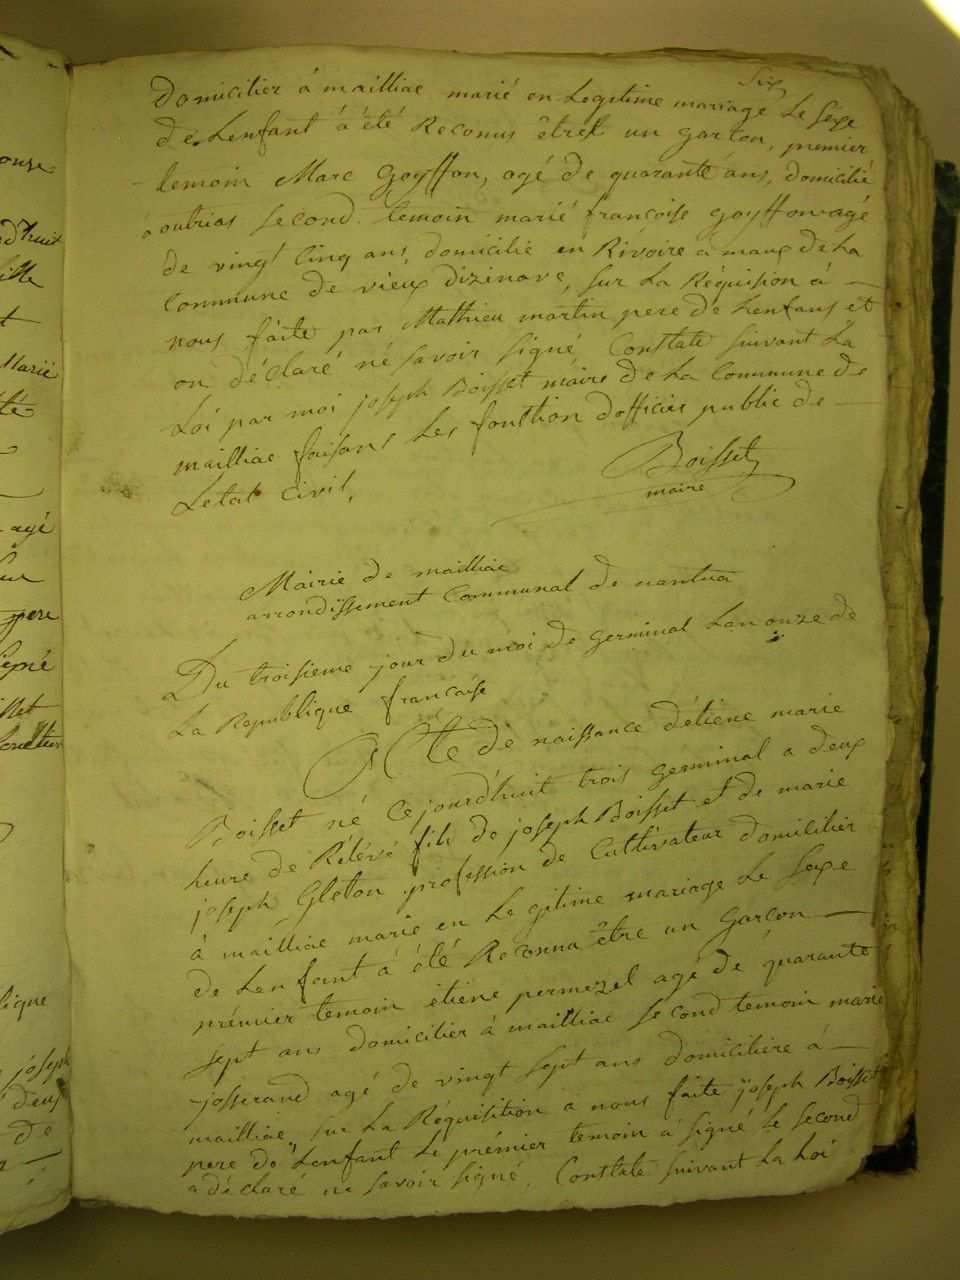 Six
domicilier à mailliac marié en Legitime mariage Le sexe
de Lenfant à été Reconus être un garcon, premier
temoin Marc Goyffon, agé de quarante ans, domicilié
à outrias second temoin marie françoise goyffon agé
de vingt Cinq ans, domicilié en Rivoire a maux de La
Commune de vieux dizinave, sur La Réquision à
nous faite par Mathieu martin pere de Lenfans et
on déclaré né savoir signé, Constaté suivant La
Loi par moi joseph Boisset maire de La Commune de
mailliac faisans Les fonstion dofficier public de
Letat Civil,
Boisset
maire
Mairie de mailliac
arrondissement Communal de nantua
Du troisieme jour du moi de germinal Lan onze de
La Republique francaise
Acte de naissance détiene marie
Boisset né cejourdhuit trois germinal a deux
heure de Rélévé fils de joseph Boisset et de marie
joseph Gleton profession de Cultivateur domicilier
à mailliac marié en Legitime mariage Le sexe
de Lenfant à été Reconnu être un Garcon
prémier temoin étiene permezel agé de quarante
sept ans domicilier à mailliac second temoin marie
josserand agé de vingt sept ans domicilière à
mailliac, sur La Réquisition a nous faite joseph Boisset
pere de Lenfant Le prémier temoin a signé Le second
a déclaré ne savoir signé, Constaté suivant La Loi
onze
dhuit
fille
et
Marie
té
agé
Sur
pere
signé
isset
fonction
blique
joseph
deux
de